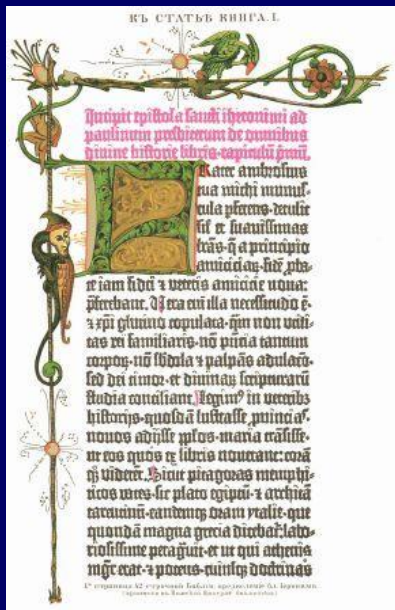 КЪ СТАТЬѢ КНИГА. I.
Incipit epistola sancti iheronimi ad
paulinum presbiterum de omnibus
divine historie libris. capitulū p̄mū.
Frater ambrosius
tua michi munus-
cula p̄ferens. detulit
sil' et suavissimas
lr̄as. q̄ a principio
amiciciaꝝ. fidē pba-
te iam fidei ⁊ veteris amicicie noua:
p̄ferebant. Vera em̄ illa necessitudo ē.
⁊ xp̄i glutino copulata. qm̄ non vtili-
tas rei familiaris. nō p̄ncia tantum
corpoꝝ. nō sb̓dola ⁊ palpās adulacō.
sed dei timor. et diuinaꝝ scripturarū
studia conciliant. Legim⁹ in veterib⁹
historijs. quosdā lustrasse ꝓuincias.
nouos adijsse pp̄los. maria trāsisse.
ut eos quos ex libris nouerant: corā
q̄ꝫ viderēt. Sicut pitagoras memphi-
ticos vates. sic plato egiptū. ⁊ architā
tarentinū. eandemqꝫ oram ytalie. que
quondā magna grecia dicebat̄: labo-
riosissime peragᷓuit. et ut qui athenis
mgr̄ erat. ⁊ potens. cuiusqꝫ doctrinas
1я страница 42 строчной Библіи, предисловіе бл. Іеронима.